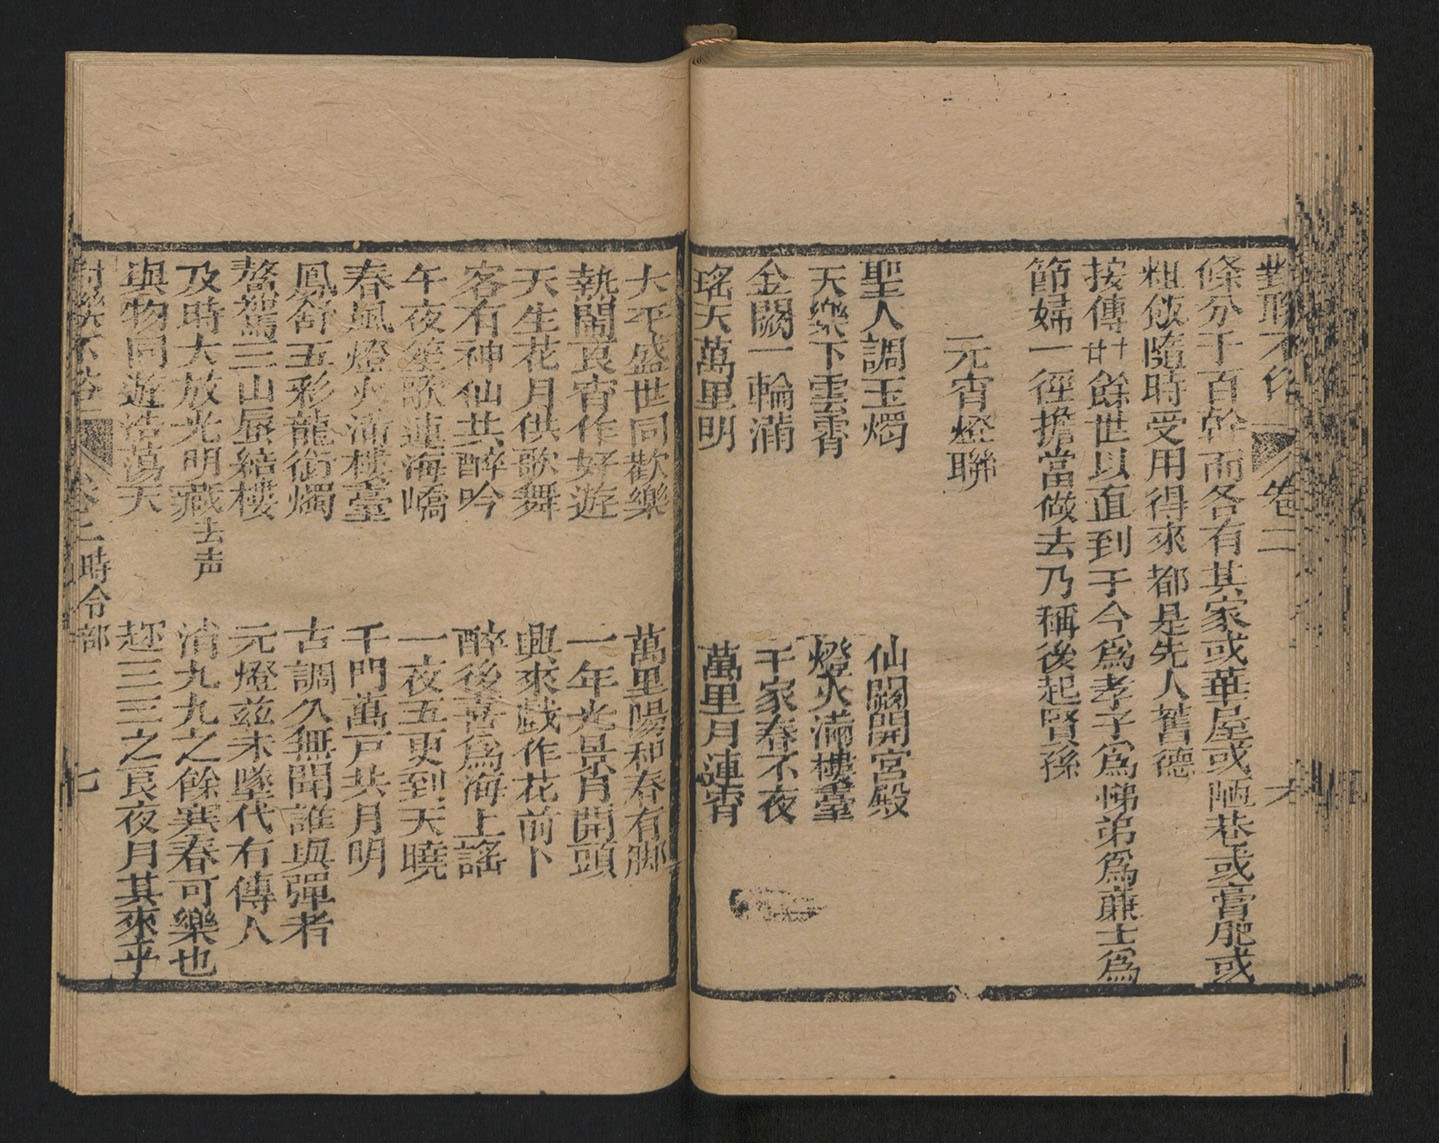 對聯不俗 卷二 六
條分千百幹而各有其家或華屋或陋巷或膏肥或
粗飯隨時受用得來都是先人舊德
按傳廿餘世以直到于今為孝子為悌弟為廉士為
節婦一徑擔當做去乃稱後起賢孫
元宵燈聯
聖人調玉燭 仙闕開宮殿
天樂下雲霄 燈火滿樓臺
金闕一輪滿 千家春不夜
瑤天萬里明 萬里月連霄
大平盛世同歡樂 萬里陽和春有脚
熱鬧良宵作好遊 一年光景月開頭
天生花月供歌舞 興來戲作花前卜
客有神仙共醉吟 醉後喜為海上謠
午夜笙歌連海嶠 一夜五更到天曉
春風燈火滿樓臺 千門萬戸共月明
鳳舒五彩龍銜燭 古調久無聞誰與彈者
鰲駕三山蜃結樓 元燈兹未墜代有傳人
及時大放光明藏去声 消九九之餘寒春可樂也
與物同遊浩蕩天 趂三三之良夜月其來乎
對聯不俗 卷二 時令部 七